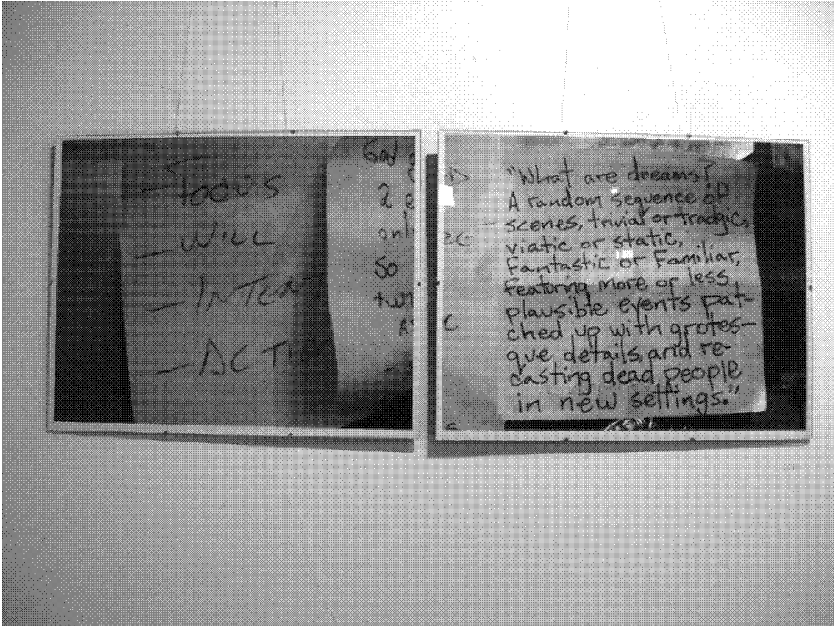 - FOCUS
- WILL
- INTEN
- ACTI
God
2
onl
So
twi
"What are dreams?
A random sequence of
scenes, trivial or tradgic,
viatic or static,
fantastic or familiar,
featuring more or less
plausible events pat-
ched up with grotes-
que details, and re-
casting dead people
in new settings."